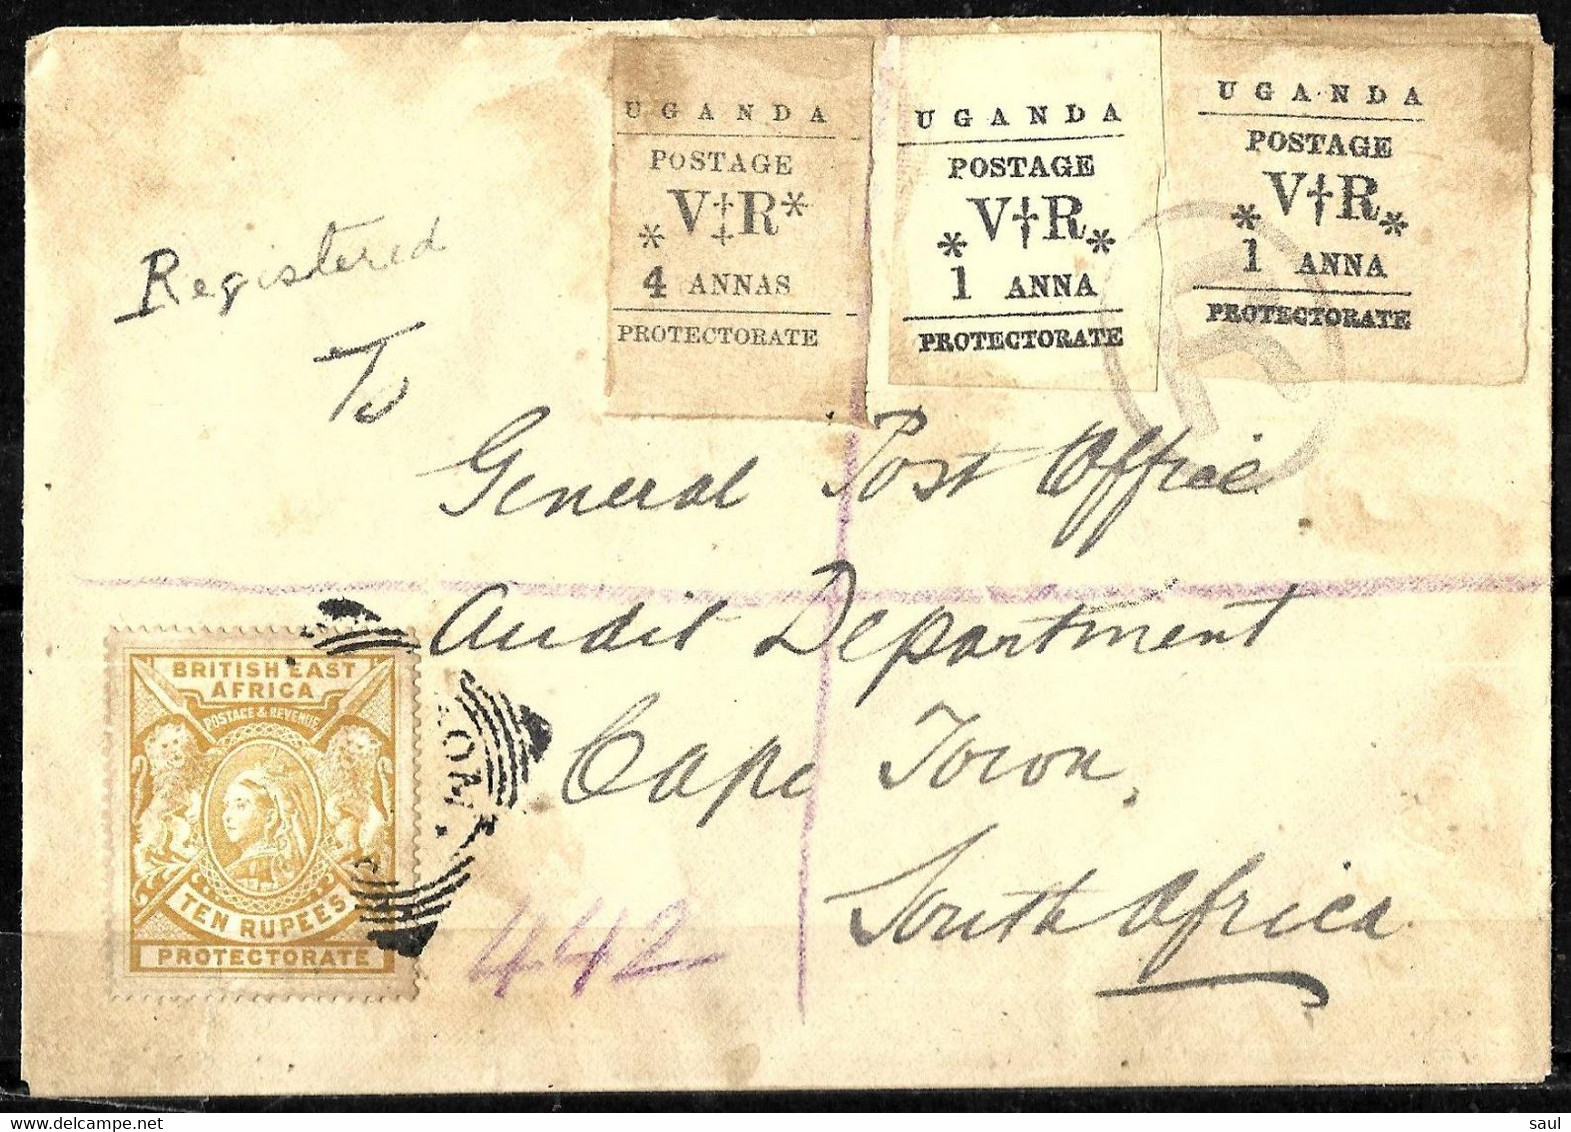 UGANDA
POSTAGE
* V‡R *
4 ANNAS
PROTECTORATE
UGANDA
POSTAGE
* V†R *
1 ANNA
PROTECTORATE
UGANDA
POSTAGE
* V†R *
1 ANNA
PROTECTORATE
R
Registered
To
General Post Office
Audit Department
Cape Town,
South Africa
BRITISH EAST
AFRICA
POSTAGE & REVENUE
TEN RUPEES
PROTECTORATE
442
Saul